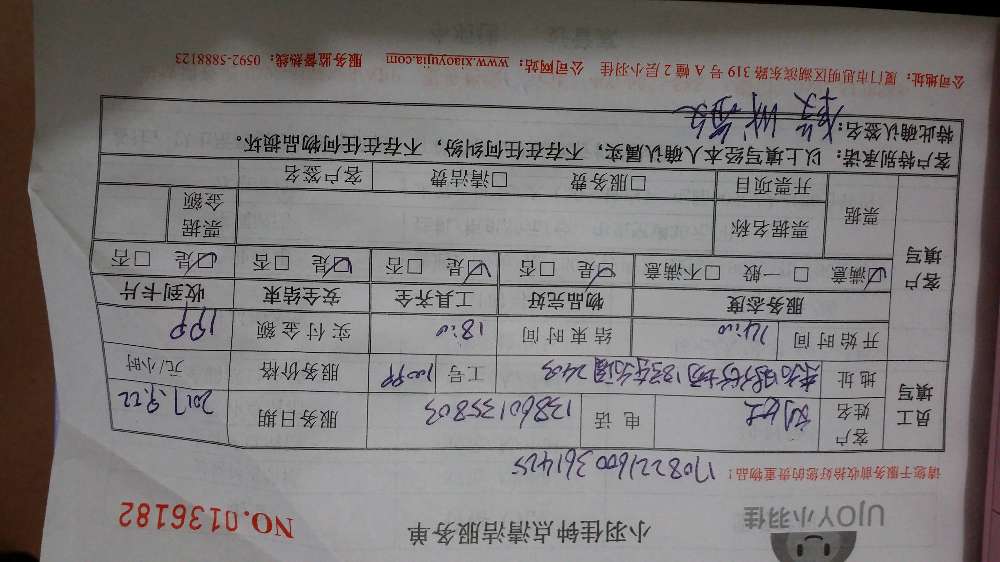 UJOY小羽佳
小羽佳钟点清洁服务单
NO.0136182
请您于服务前收拾好您的贵重物品！
1708221600361425
员工填写
客户姓名
电话 13860135803
服务日期 2017.8.22
地址
工号
服务价格 元/小时
开始时间 14:00
结束时间 18:00
实付金额
客户填写
服务态度 物品完好 工具齐全 安全结束 收到卡片
☑满意 □一般 □不满意 ☑是 □否 ☑是 □否 ☑是 □否 ☑是 □否
票据
票据名称
票据金额
开票项目 □服务费 □清洁费 客户签名
客户特别承诺：以上填写经本人确认属实，不存在任何纠纷，不存在任何物品损坏。
特此确认签名：
公司地址：厦门市思明区湖滨东路319号A幢2层小羽佳 公司网站：www.xiaoyujia.com 服务监督热线：0592-5888123